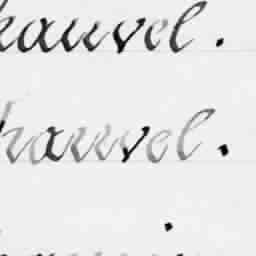 hauvel.
hauvel.